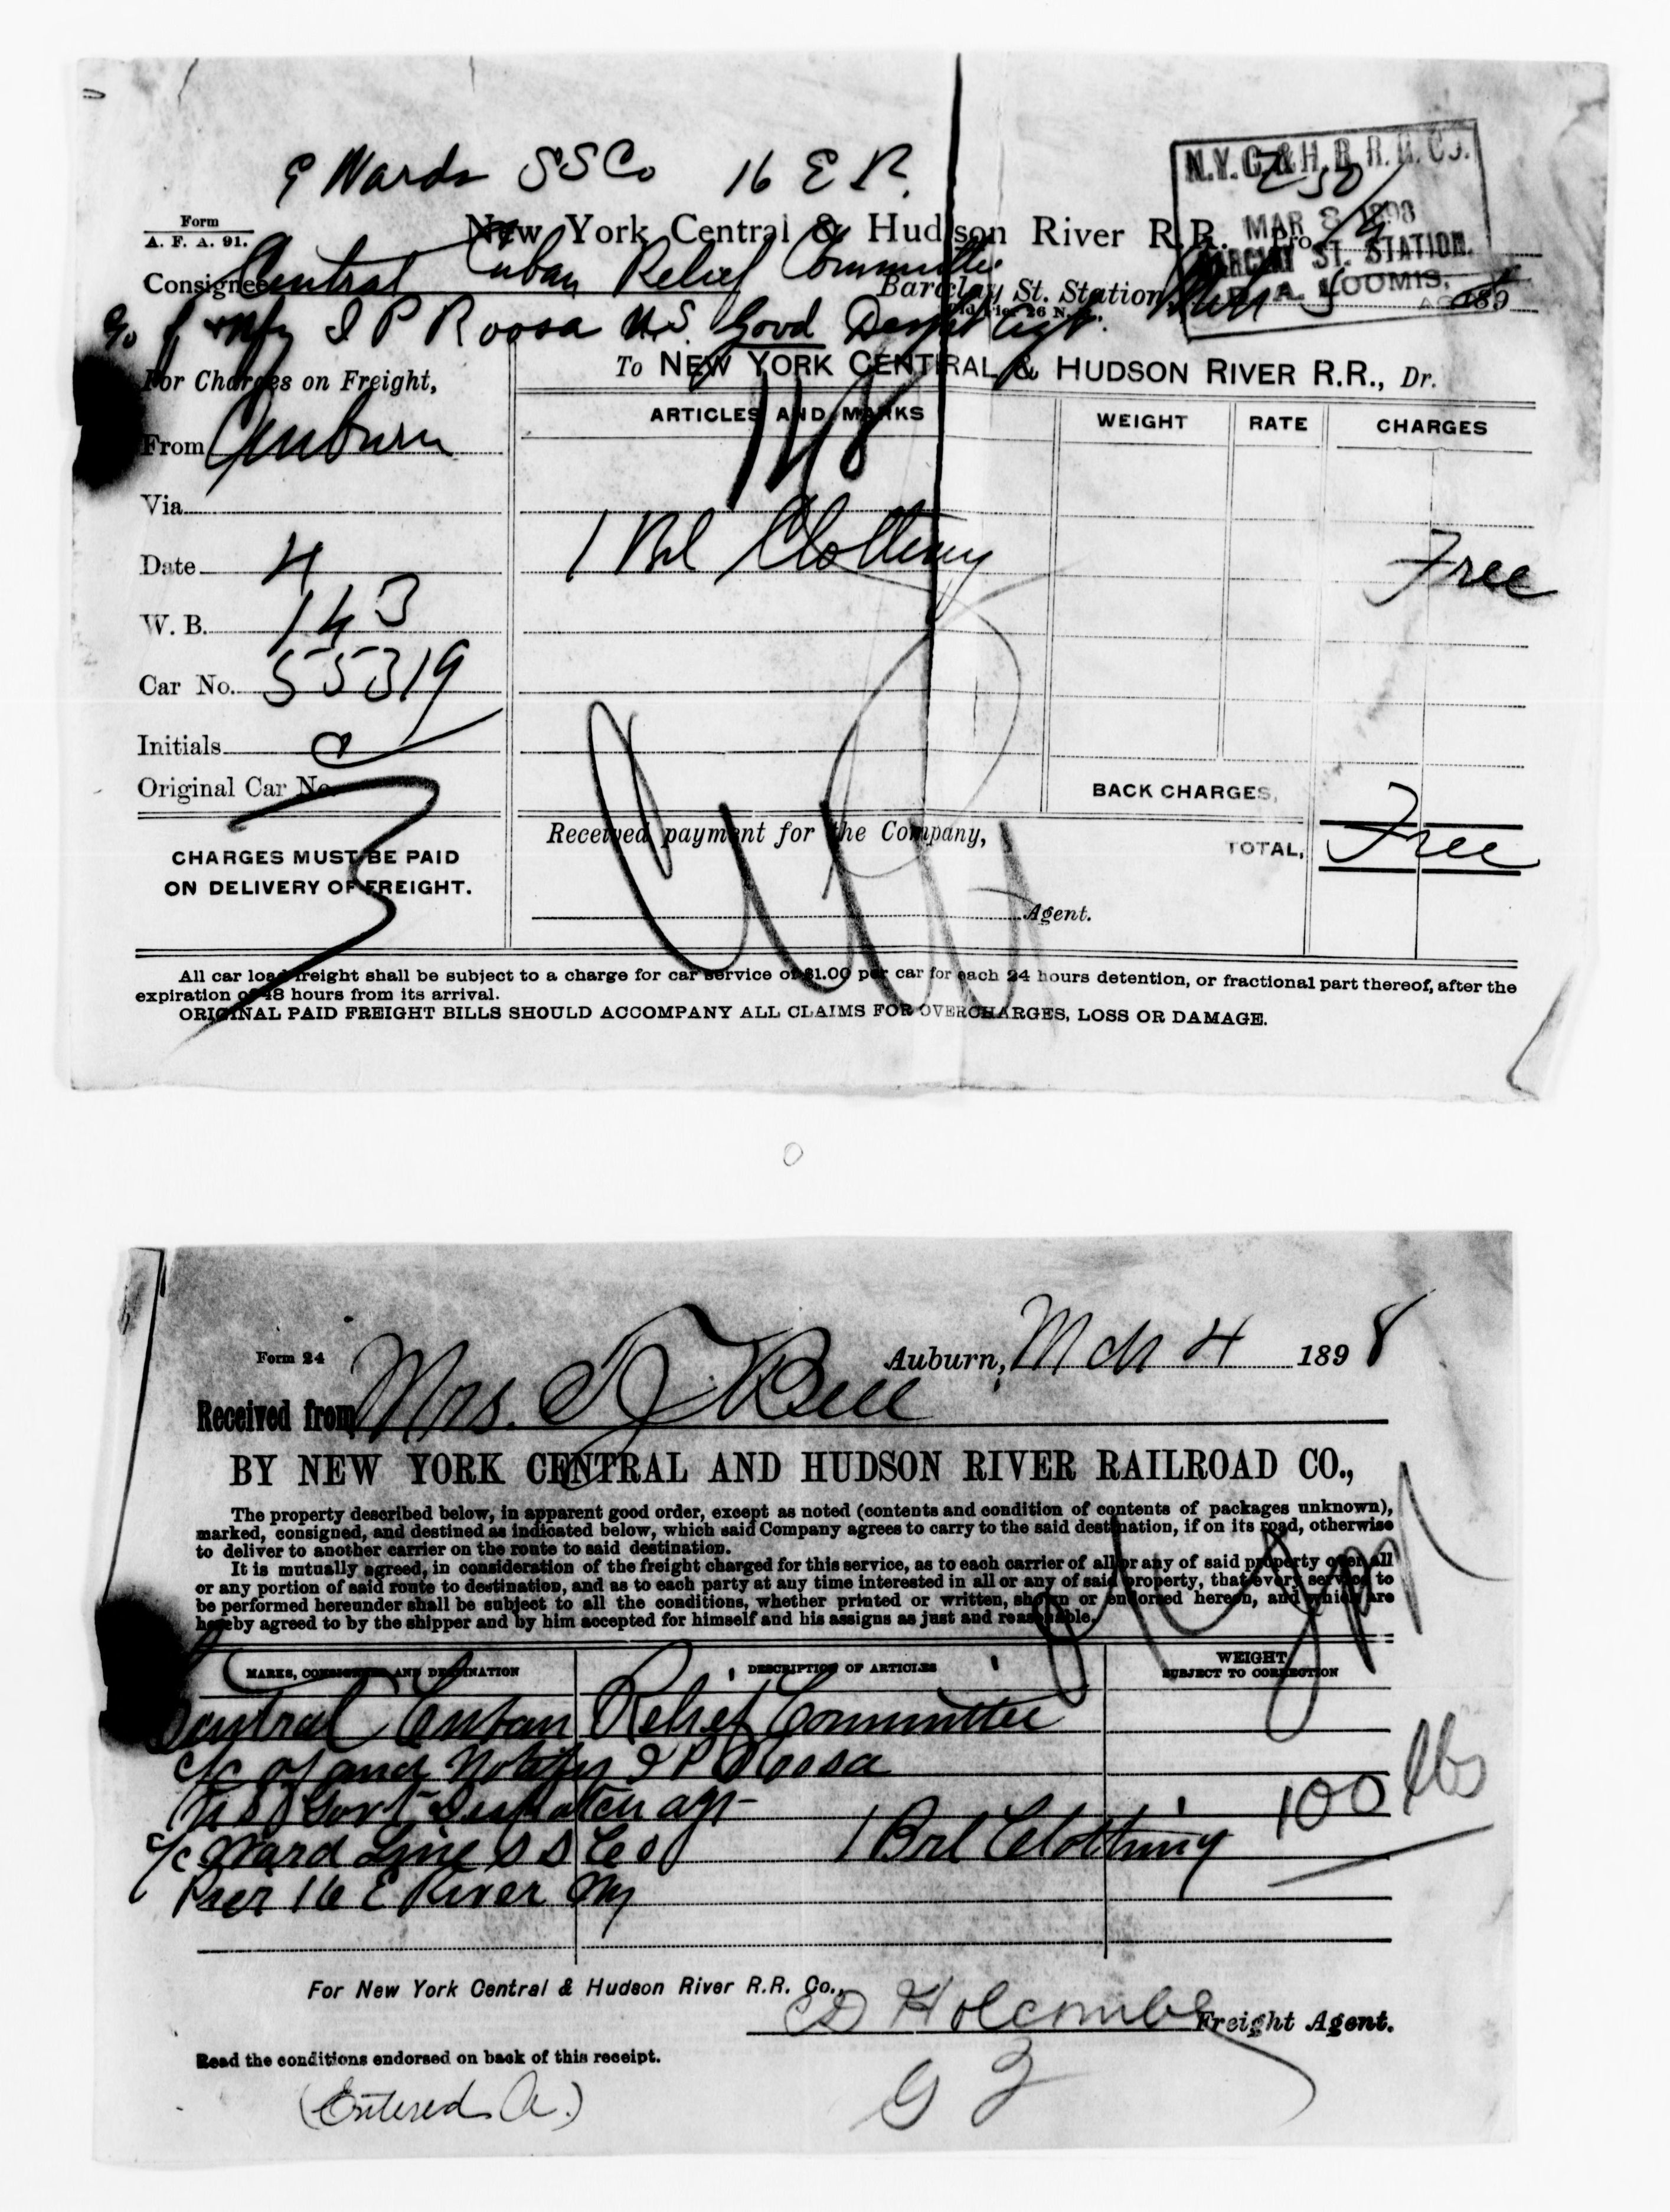 Wards SS Co 16 E R.
N.Y.C. & H.R.R.R. Co.
Form
A. F. A. 91.
New York Central & Hudson River R.R. Pro
MAR 8 1898
BARCLAY ST. STATION.
Consignee Central Cuban Relief Committee
Barclay St. Station, 189
LOOMIS,
I P Roosa U.S.
For Charges on Freight,
To NEW YORK CENTRAL & HUDSON RIVER R.R., Dr.
ARTICLES AND MARKS WEIGHT RATE CHARGES
118
From Auburn
Via
Date 4 1 Brl Clothing Free
W. B. 143
Car No. 55319
Initials
Original Car No.
BACK CHARGES,
3
Received payment for the Company,
TOTAL, Free
CHARGES MUST BE PAID
ON DELIVERY OF FREIGHT.
Agent.
All car load freight shall be subject to a charge for car service of $1.00 per car for each 24 hours detention, or fractional part thereof, after the
expiration of 48 hours from its arrival.
ORIGINAL PAID FREIGHT BILLS SHOULD ACCOMPANY ALL CLAIMS FOR OVERCHARGES, LOSS OR DAMAGE.
Form 24
Auburn, Mch 4 1898
Received from Mrs.
BY NEW YORK CENTRAL AND HUDSON RIVER RAILROAD CO.,
The property described below, in apparent good order, except as noted (contents and condition of contents of packages unknown),
marked, consigned, and destined as indicated below, which said Company agrees to carry to the said destination, if on its road, otherwise
to deliver to another carrier on the route to said destination.
It is mutually agreed, in consideration of the freight charged for this service, as to each carrier of all or any of said property over all
or any portion of said route to destination, and as to each party at any time interested in all or any of said property, that every service to
be performed hereunder shall be subject to all the conditions, whether printed or written, shown or endorsed hereon, and which are
hereby agreed to by the shipper and by him accepted for himself and his assigns as just and reasonable.
MARKS, CONSIGNEE AND DESTINATION DESCRIPTION OF ARTICLES WEIGHT
SUBJECT TO CORRECTION
Central Cuban Relief Committee
c/c of and Notify I P Roosa
U S Govt Despatch agt
c/c Ward Line S S Co 1 Brl Clothing 100 lbs
Pier 16 E River NY
For New York Central & Hudson River R.R. Co.,
Holcomb Freight Agent.
Read the conditions endorsed on back of this receipt.
(Entered A.)